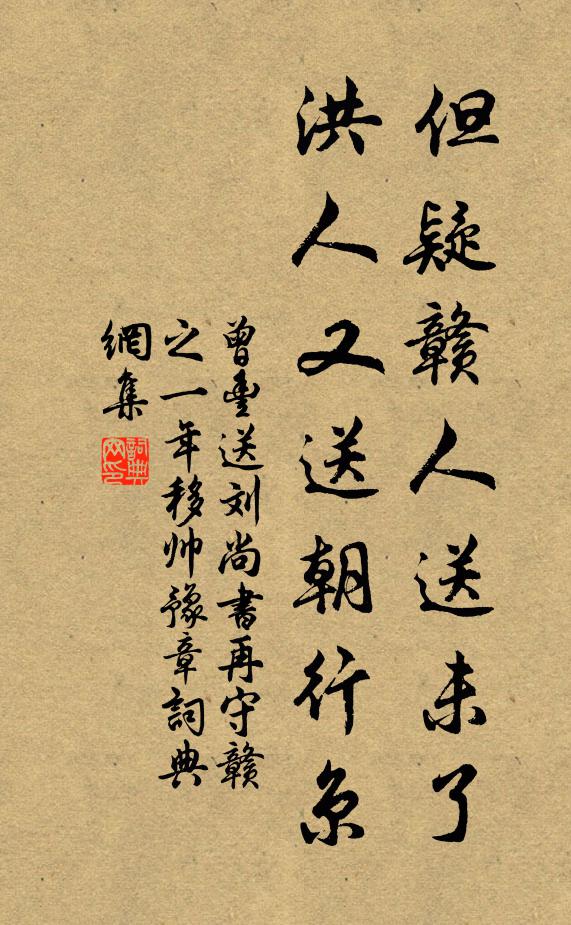 但疑赣人送未了
洪人又送朝行京
曾豐送刘尚書再守赣
之一年移帅豫章詞典
網集
詞典网印